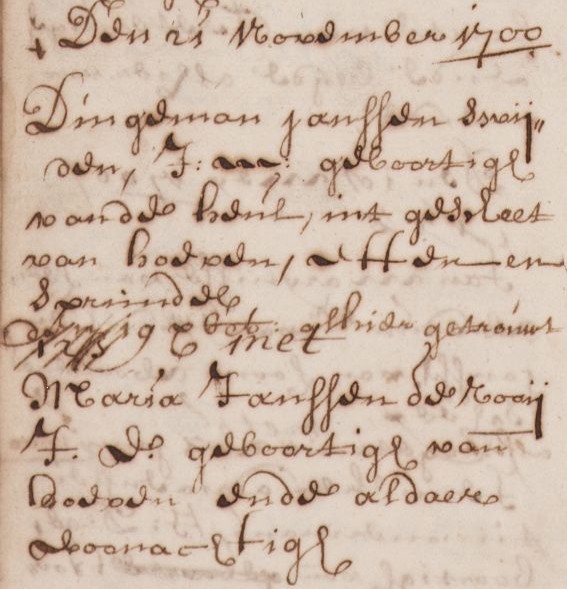 Den 21 November 1700
Dingeman Janssen Swij„
den, J: m: geboortigh
vande heul, int gedeelt
van hoeven, Etten en
Sprundel
den 19 xbeb: alhier getrouwt
met
Maria Janssen de Rooij
J. D. geboortigh van
hoeven ende aldaer
woonachtigh